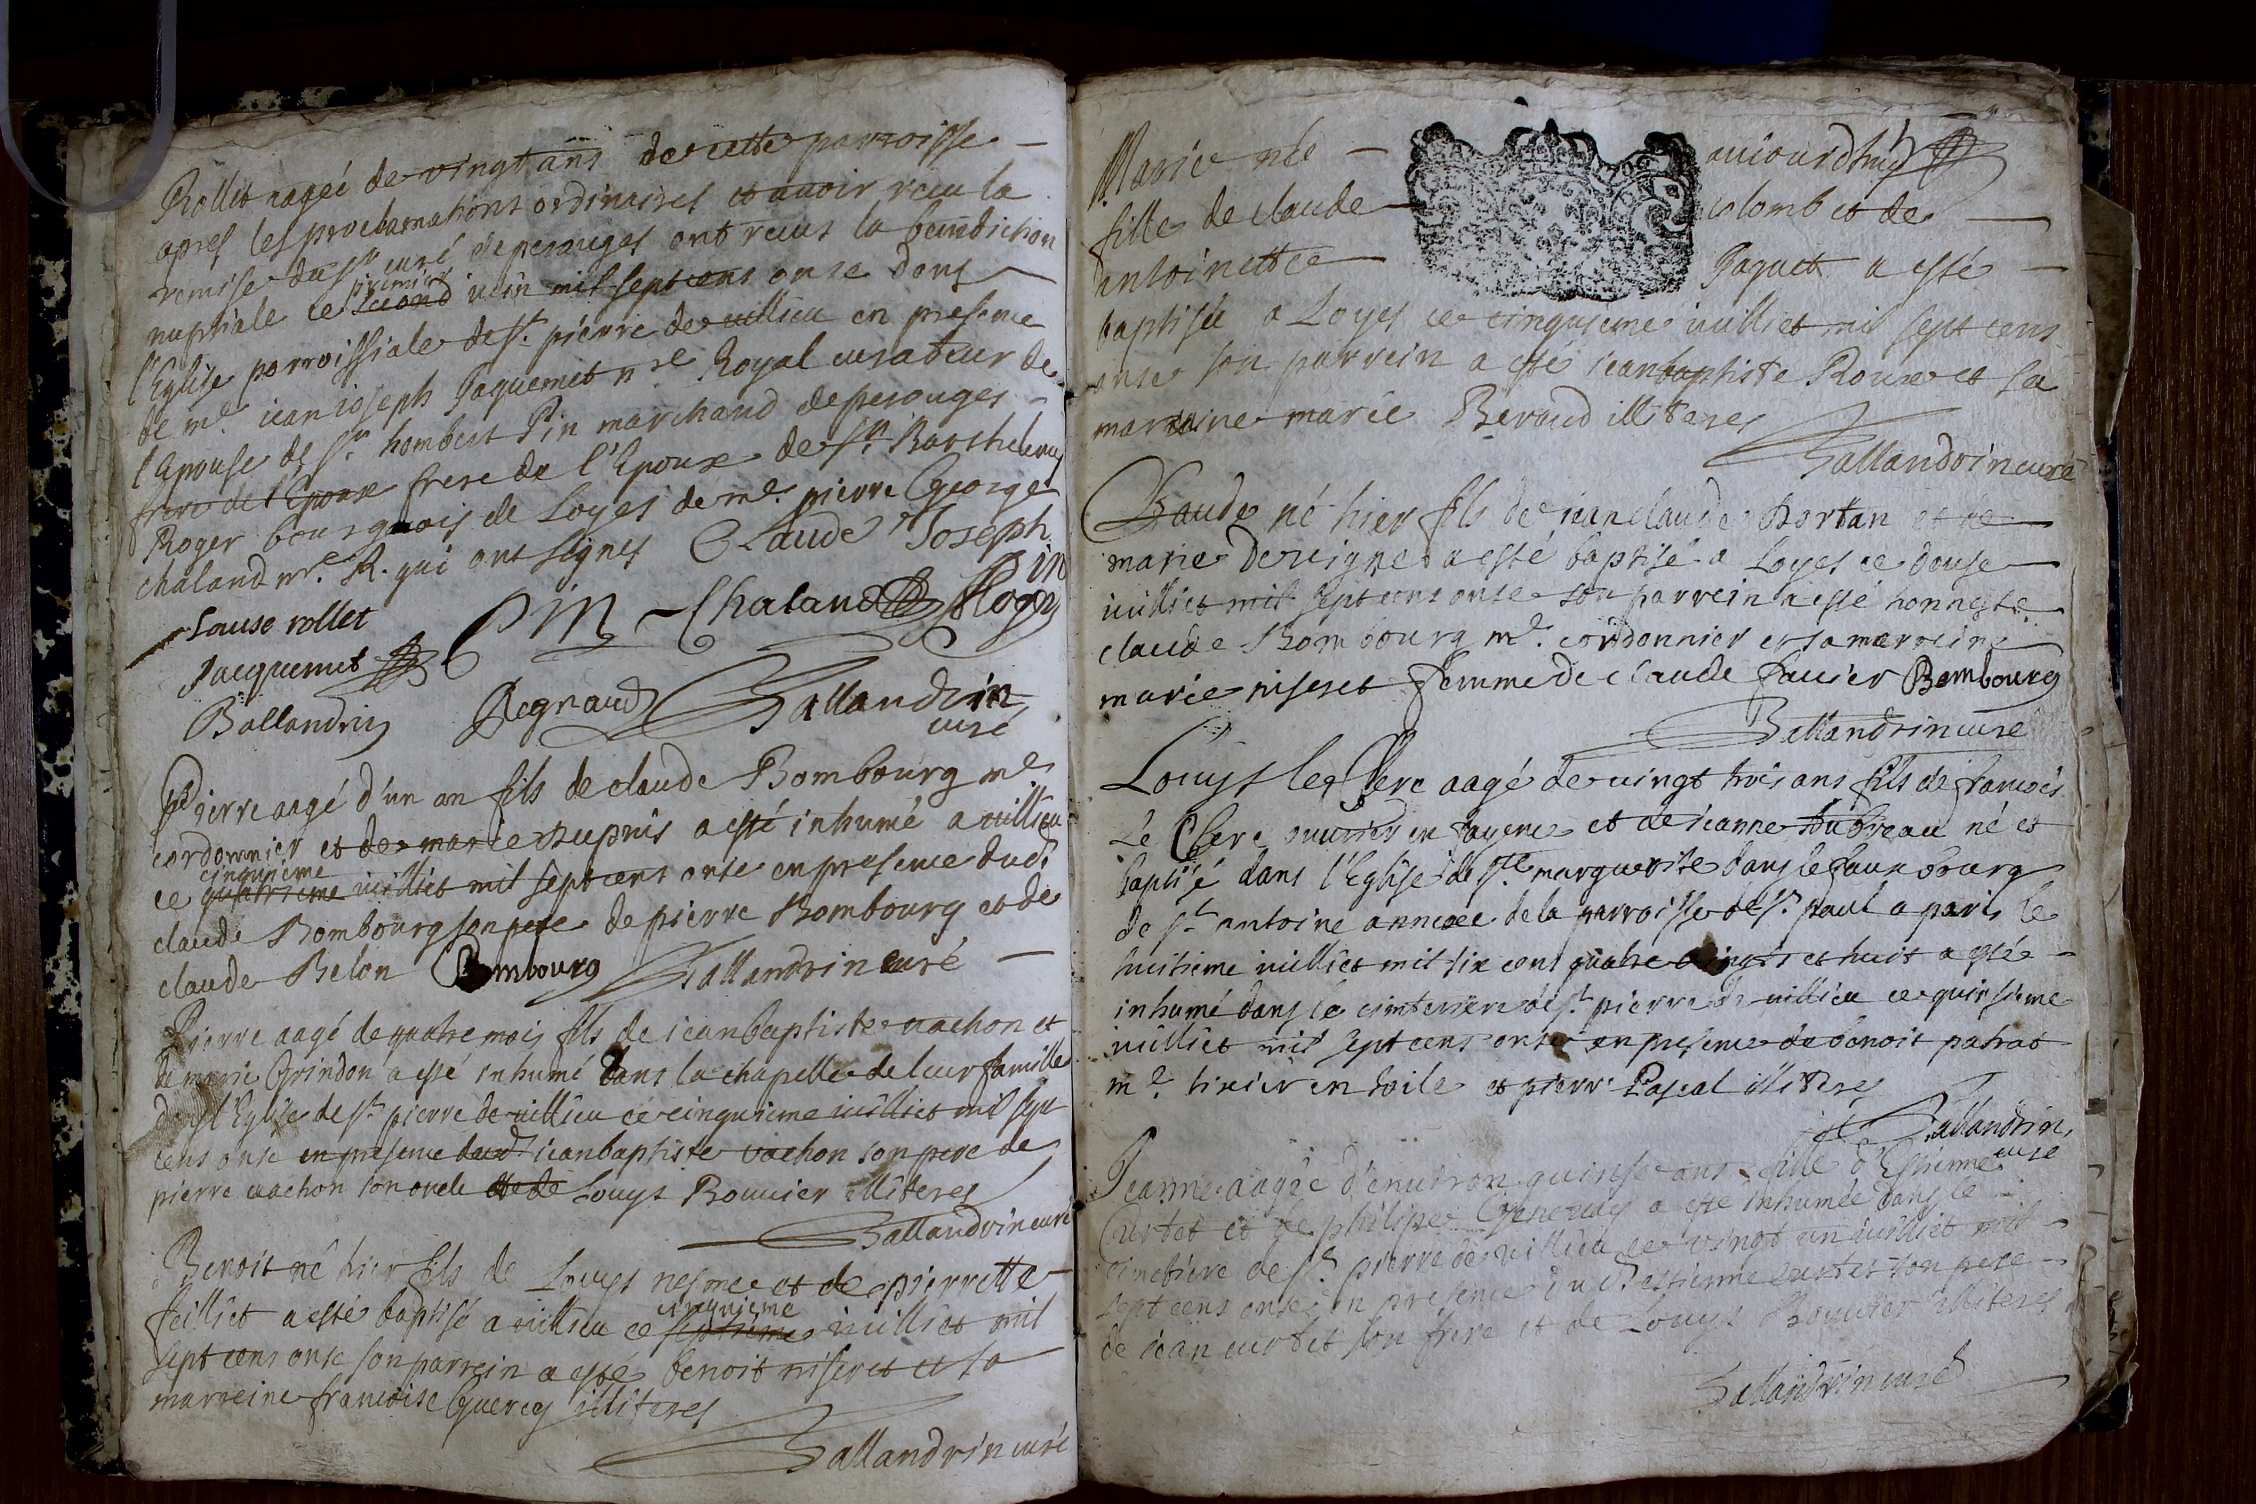 Rollet aagée de vingt ans de cette parroisse
apres les proclamations ordinaires et auoir receu la
remise du sr curé de perouges ont receus la benediction
nuptiale ce second premier iuin mil sept cens onse dans
l'Eglise parroissiale de st. pierre de uillieu en presence
de me. iean ioseph Jaquemet nre Royal curateur de
l'Epouse de sr. hombert Pin marchand de perouges
frere de l'Epoux frere de l'Epoux de sr. Barthelemy
Roger bourgeois de Loyes de me. pierre George
chaland nre. R. qui ont signes Claude Joseph
Louise rollet Pin Chaland Roger Pin
Jacquemet
Ballandrin Regnaud Ballandrin
curé
Pierre aagé d'un an fils de claude Bombourg me
cordonnier et de marie Dupuis a esté inhumé a uillieu
ce quatrieme cinquieme iuilliet mil sept cens onse en presence dud.
claude Bombourg son pere de pierre Bombourg et de
claude Belon Bombourg Ballandrin curé
Pierre aagé de quatre mois fils de iean baptiste uachon et
de marie Grindon a esté inhumé dans la chapelle de leur famille
dans l'Eglise de st. pierre de uillieu ce cinquieme iuilliet mil sept
cens onse en presence dud iean baptiste vachon son pere de
pierre uachon son oncle et de Louys Bouuier illiteres
Ballandrin curé
Benoit né hier fils de Louys nesme et de pierrette
feilliet a esté baptisé a uillieu ce septieme cinquieme iuilliet mil
sept cens onse son parrein a esté benoit niseret et sa
marreine francoise Guercy illiteres
Ballandrin curé
Marie née auiourdhuy
fille de claude colomb et de
antoinette Paquet a esté
baptisée a Loyes ce cinquieme iuilliet mil sept cens
onse son parrein a esté iean baptiste Roux et sa
marraine marie Beraud illiteres
Ballandrin curé
Claude né hier fils de iean claude Dortan et de
marie Deuigne a esté baptisé a Loyes ce douse
iuilliet mil sept cens onse son parrein a esté honneste
claude Bombourg me. cordonnier et sa marreine
marie niseret femme de claude fauier Bombourg
Ballandrin curé
Louys le Clerc aagé de uingt trois ans fils de francois
Le Clerc ouurier en fayence et de ieanne aubreau né et
baptisé dans l'Eglise de ste marguerite dans le faux bourg
de st antoine annexe de la parroisse de st. paul a paris le
huitieme iuilliet mil six cens quatre uingts et huit a esté
inhumé dans le cimterière de st. pierre de uillieu ce quinsieme
iuilliet mil sept cens onse en presence de benoit patrat
me. tixier en toile et pierre Pascal illiteres
Ballandrin
curé
Jeanne aagée d'enuiron quinse ans fille d'Estienne
Curtet et de philipe a esté inhumée dans le
cimetiere de st. pierre de uillieu ce vingt un iuilliet mil
sept cens onse en presence dud. estienne curtet son pere
de iean curtet son frere et de Louys Bouuier illiteres
Ballandrin curé